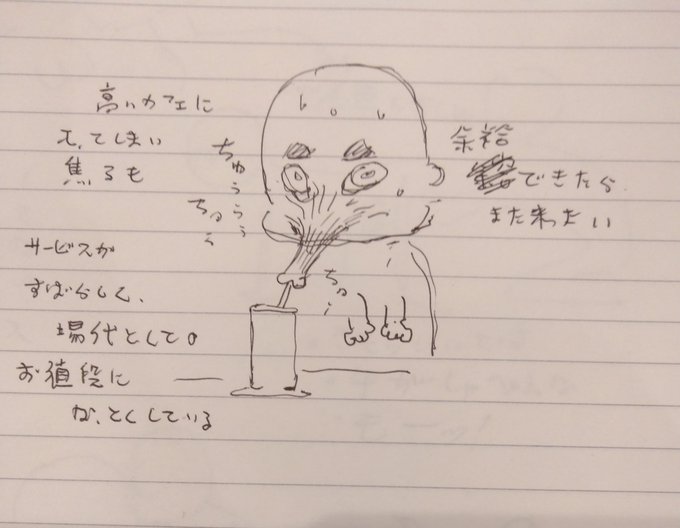 高いカフェに
ってしまい
焦るも
サービスが
すばらしく、
場代としての
お値段に
なっとくしている
ちゅううぅ
ちゅぅ
ちゅぅ
余裕
できたら
また来たい